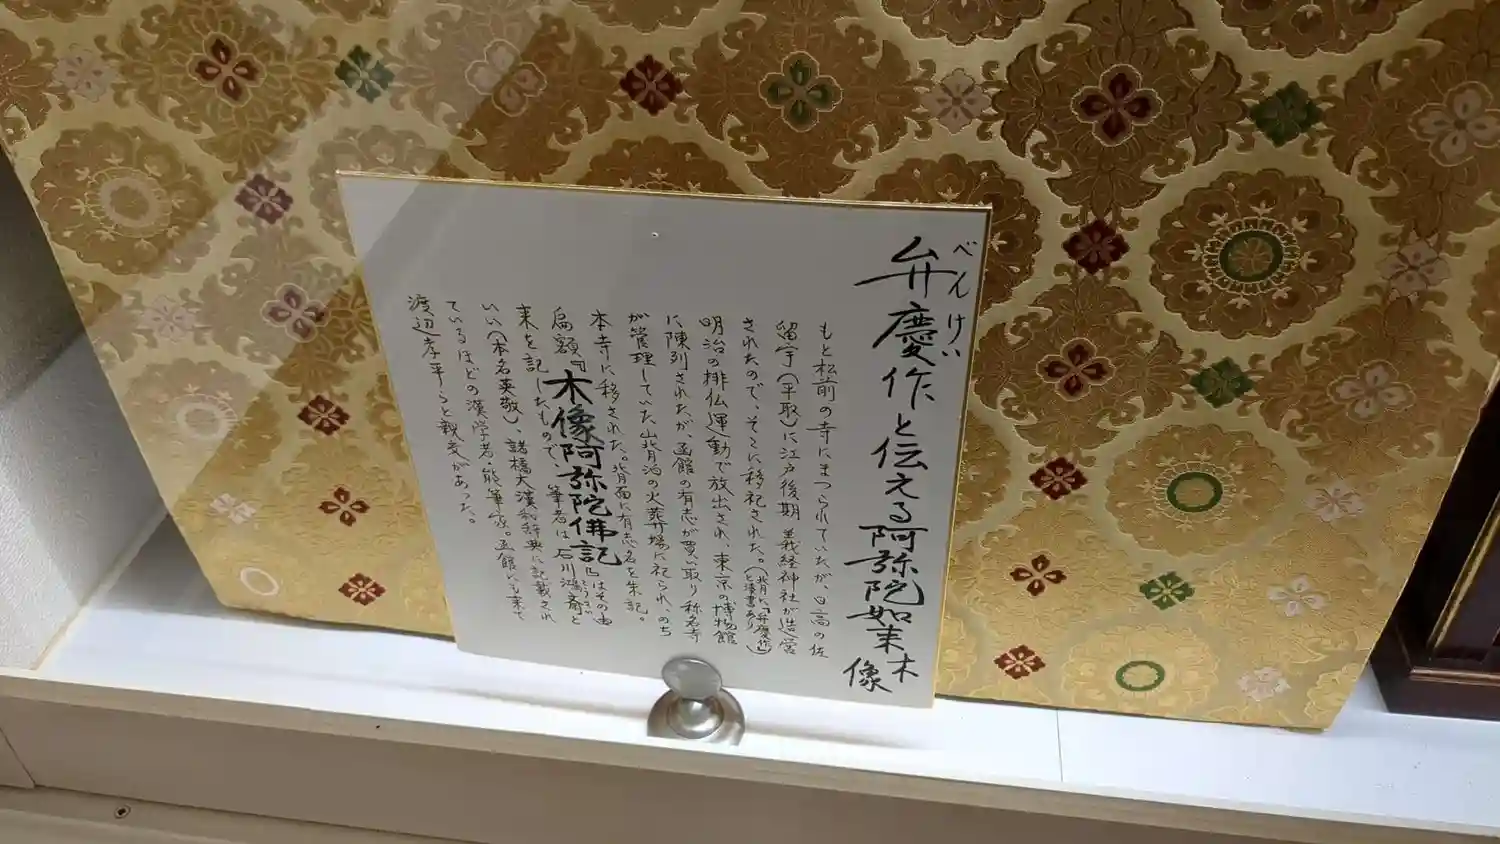 弁慶作と伝える阿弥陀如来木像
べんけい
もと松前の寺にまつられていたが日高の佐
留宇(平取)に江戸後期 義経神社が造営
されたので、そこに移祀された。(背に「弁慶作」と漆書あり)
明治の排仏運動で放出され、東京の博物館
に陳列されたが、函館の有志が買い取り称名寺
が管理していた山背泊の火葬場に祀られ、のち
本寺に移された。背面に有志名を朱記。
扁額『木像阿弥陀佛記』はその由
来を記したもので、筆者は石川鴻斎と
こうさい
いい(本名英敬)、諸橋大漢和辞典に記載され
ているほどの漢学者、能筆家。函館にも来て
渡辺孝平らと親交があった。